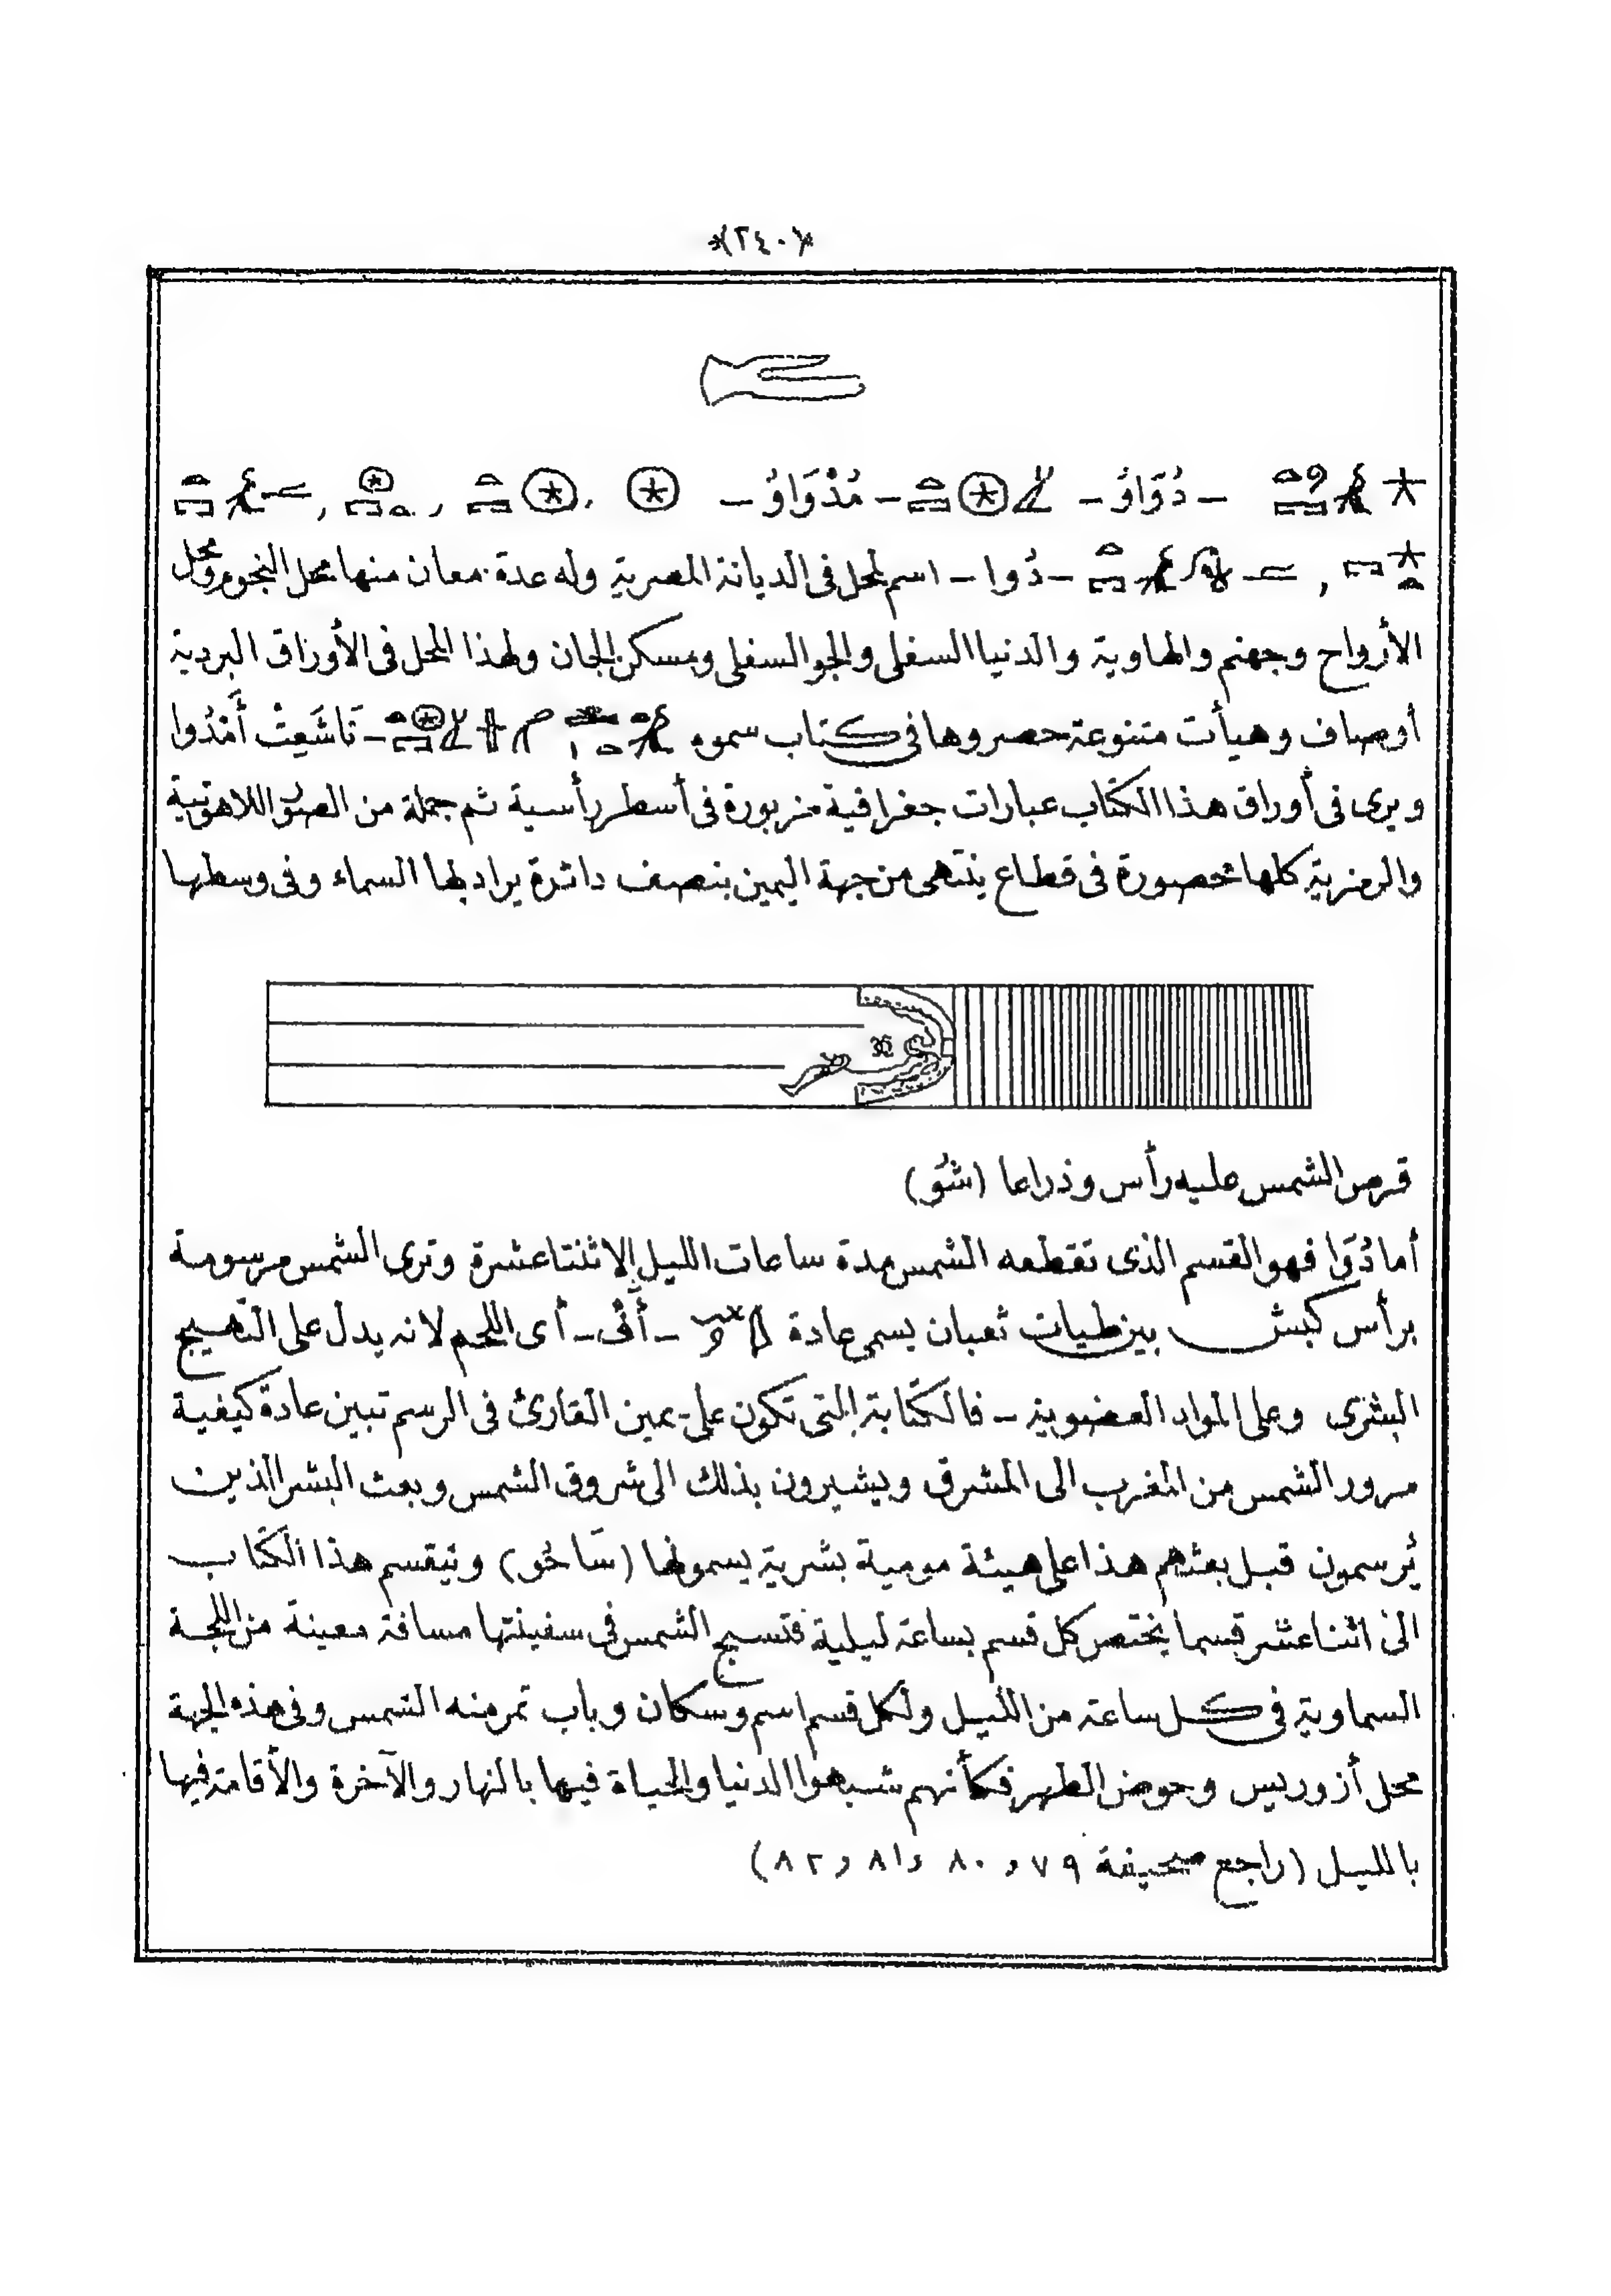 *(٢٤٠)*
- دُوَاوُ - - مُدْوَاوُ -
- دُوا - اسم لمحل فى الديانة المصرية وله عدة معان منها محل النجوم ومحل
الأرواح وجهنم والهاوية والدنيا السفلى والجو السفلى ومسكن الجان ولهذا المحل فى الأوراق البردية
أوصاف وهيأت متنوعة حصروها فى كتاب سموه - تَاشَعِتْ أَمْدُوا
ويرى فى أوراق هذا الكتاب عبارات جغرافية مزبورة فى أسطر رأسية ثم جملة من الصور اللاهوتية
والرمزية كلها محصورة فى قطاع ينتهى من جهة اليمين بنصف دائرة يراد بها السماء وفى وسطها
قرص الشمس عليه رأس وذراعا (شُو)
أما دُوَا فهو القسم الذى تقطعه الشمس مدة ساعات الليل الاثنتا عشرة وترى الشمس مرسومة
برأس كبش بين طيات ثعبان يسمى عادة - أَفُ - أى اللحم لانه يدل على التهييج
البشرى وعلى المواد العضوية - فالكتابة التى تكون على يمين القارئ فى الرسم تبين عادة كيفية
مرور الشمس من المغرب الى المشرق ويشيرون بذلك الى شروق الشمس وبعث البشر الذين
يُرسمون قبل بعثهم هذا على هيئة مومية بشرية يسمونها (سَاحُو) وينقسم هذا الكتاب
الى اثنا عشر قسما يختص كل قسم بساعة ليلية فتسبح الشمس فى سفينتها مسافة معينة من اللجة
السماوية فى كل ساعة من الليل ولكل قسم اسم وسكان وباب تمر منه الشمس وفى هذه الجهة
محل أزوريس وحوض الطهر فكأنهم شبهوا الدنيا والحياة فيها بالنهار والآخرة والأقامة فيها
بالليل (راجع صحيفة ٧٩ و ٨٠ و ٨١ و ٨٢)